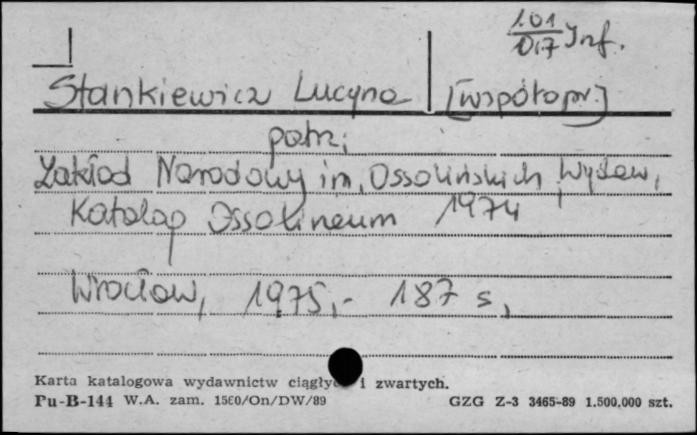 101
017 Inf.
Stankiewicz Lucyna [współopr.]
patrz:
Zakład Narodowy im. Ossolińskich, Wydaw.
Katalog Ossolineum 1974
Wrocław, 1975.- 187 s.
Karta katalogowa wydawnictw ciągłyc i zwartych.
Pu-B-144 W.A. zam. 1560/On/DW/89 GZG Z-3 3465-89 1.500.000 szt.